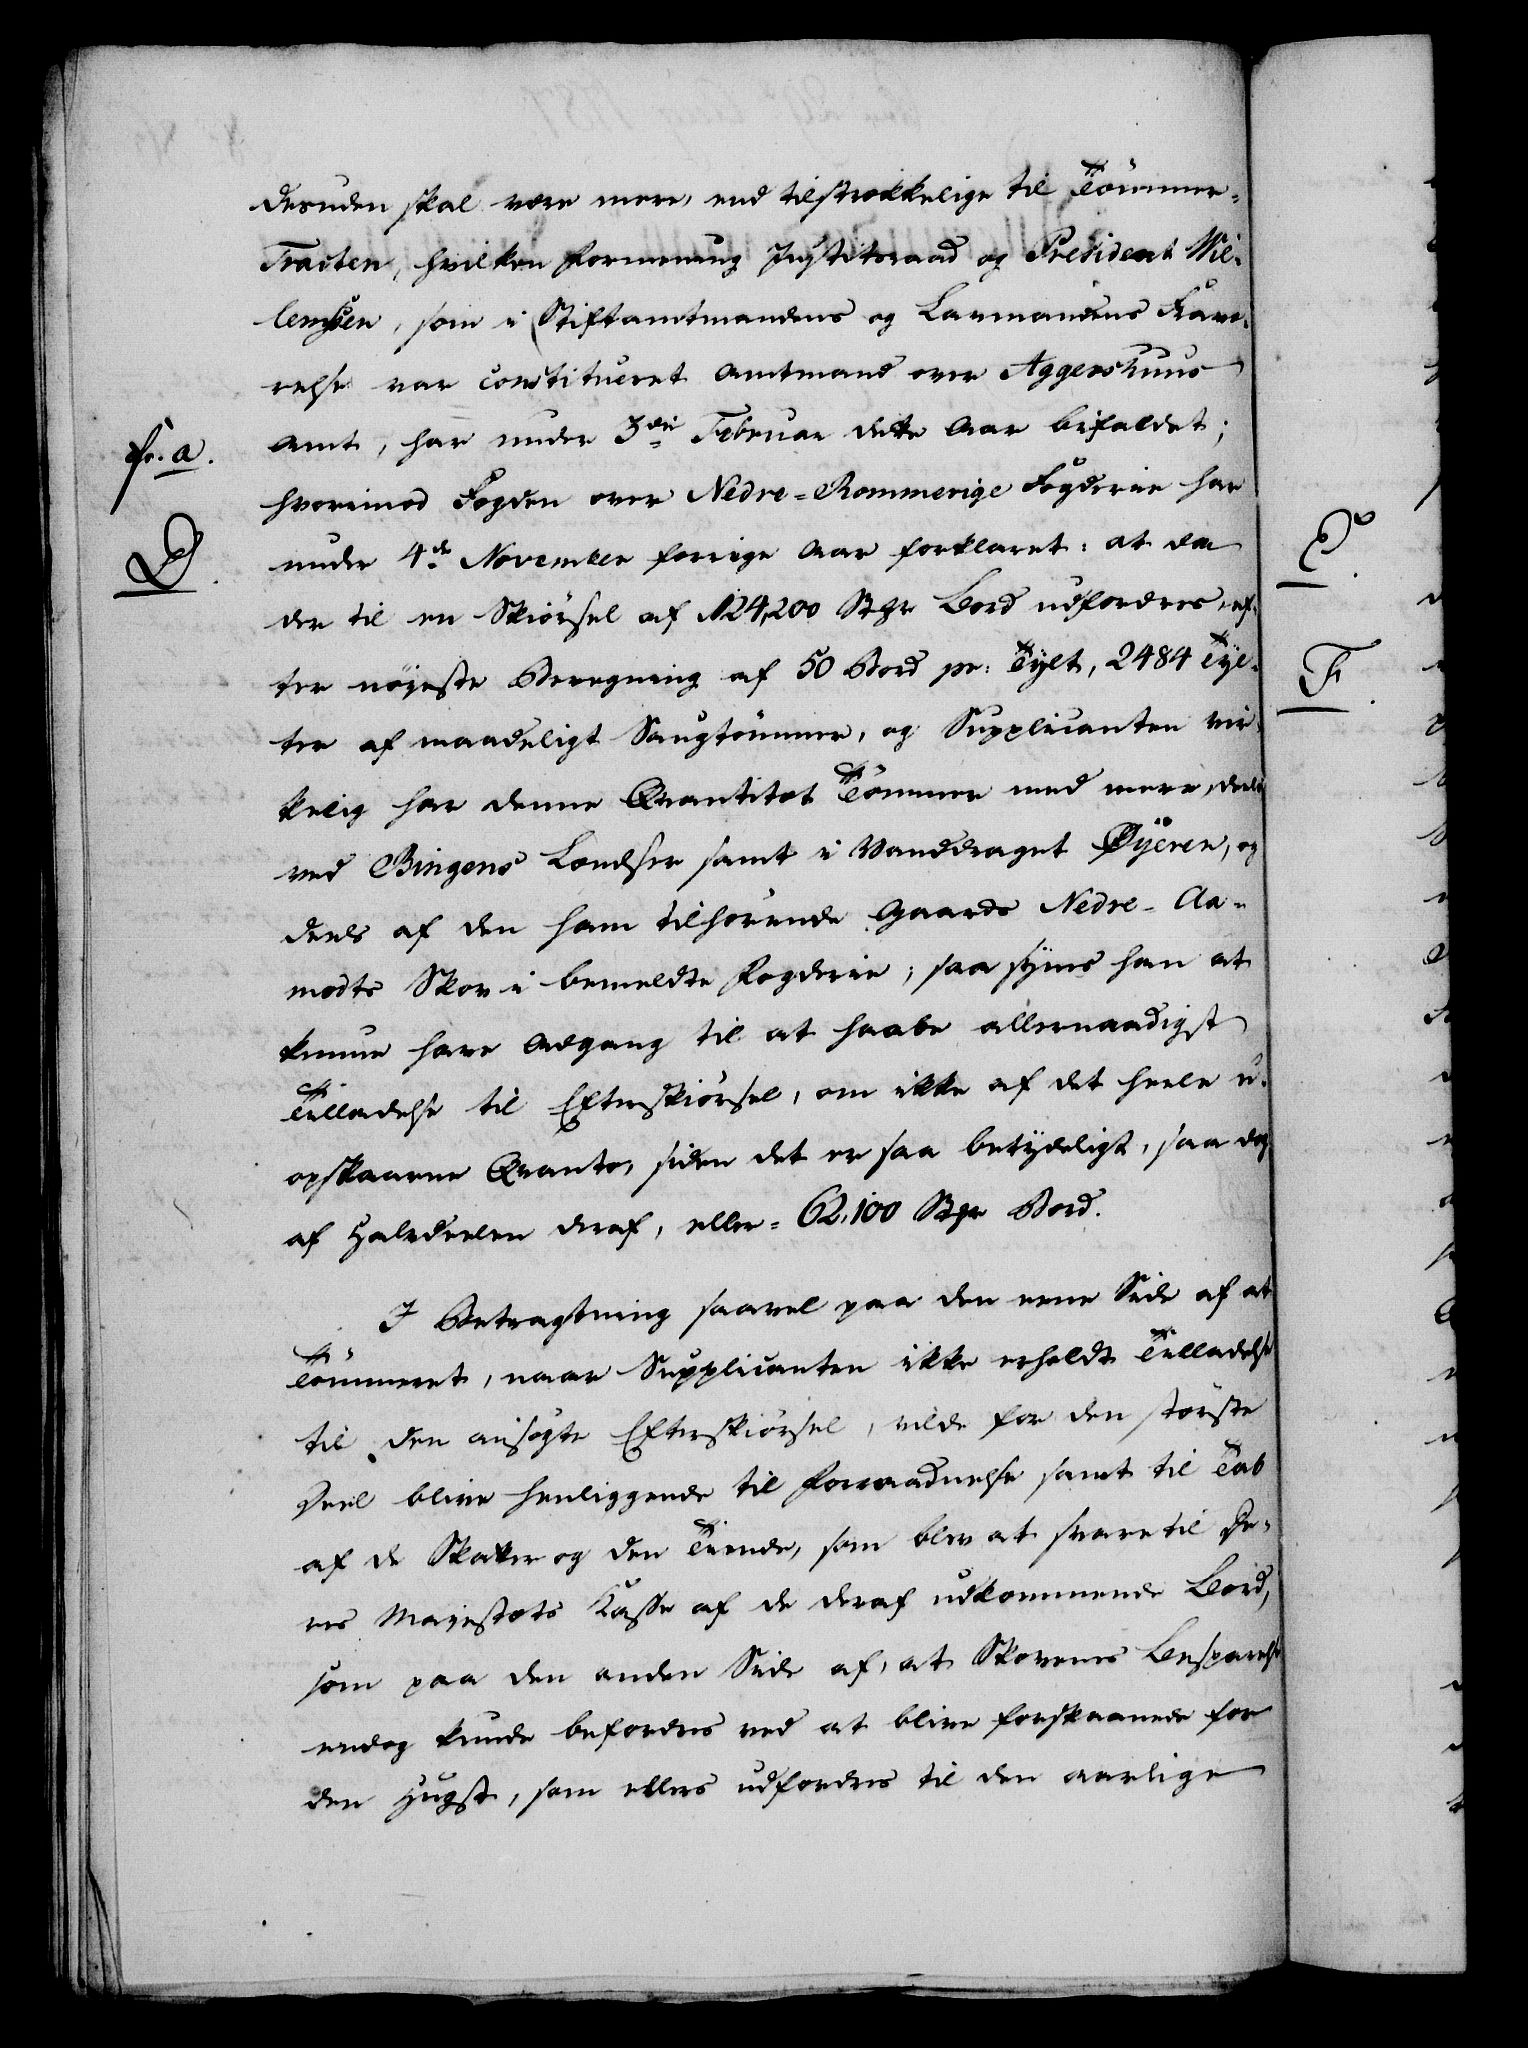 desuden skal være mere, end tilstrækkelige til Tömmer-
Tracten, hvilken Formening Justitsraad og President Wil-
lemsen, som i Stiftamtmandens og Laumandens Fravæ-
relse var constitueret Amtmand over Aggershuus
Amt, har under 3die Februar dette Aar bifaldet;
fr. a.
hvorimod Fogden over Nedre-Rommerige Fogderie har
D.
under 4de November forrige Aar forklaret: at da
der til en Skiörsel af 124,200 Stkr Bord udfordres, ef-
ter nöyeste Beregning af 50 Bord pr: Tylt, 2484 Tyl-
ter af maadeligt Saugtömmer, og Supplicanten vir-
kelig har denne Qvantitet Tömmer med mere, deels
ved Bingens Lændser samt i Vanddraget Øyeren, og
deels af den ham tilhörende Gaards Nedre-Aa-
modts Skov i bemeldte Fogderie; saa synes han at
kunne have Adgang til at haabe allernaadigst
Tilladelse til Efterskiörsel, om ikke af det heele u-
opskaarne Qvanto, siden det er saa betydeligt, saa dog
af Halvdeelen deraf, eller 62,100 Stkr Bord.
I Betragtning saavel paa den eene Side af at
Tömmeret, naar Supplicanten ikke erholdt Tilladelse
til den ansögte Efterskiörsel, vilde for den störste
Deel blive henliggende til Forraadnelse samt til Tab
af de Skatter og den Tiende, som blev at svare til De-
res Majestæts Kasse af de deraf udkommende Bord,
som paa den anden Side af, at Skovenes Besparelse
endog kunde befordres ved at blive forskaanede for
den Hugst, som ellers udfordres til den aarlige
E.
F.